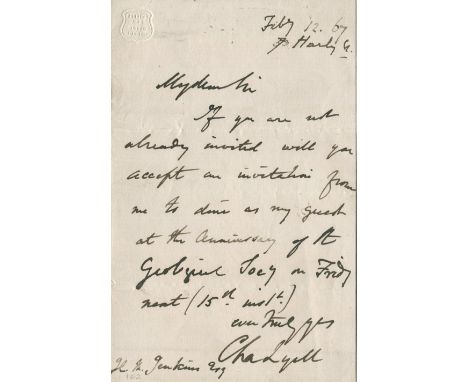 Feby 12. 67
73 Harley St.
My dear Sir
If you are not
already invited will you
accept an invitation from
me to dine as my guest
at the Anniversary of the
Geological Socy on Friday
next (15th inst)
ever truly yrs
Cha Lyell
H. M. Jenkins Esq